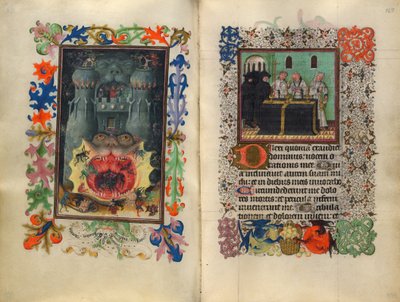 169
Dilexi quoniam exaudiet
dominus: vocem o
rationis mee. Qui
a inclinauit aurem suam mi
hi: et in diebus meis inuocabo
Circumdederunt me dolo
res mortis: et pericula inferni
inuenerunt me. Tribula
tionem et dolorem inueni: et